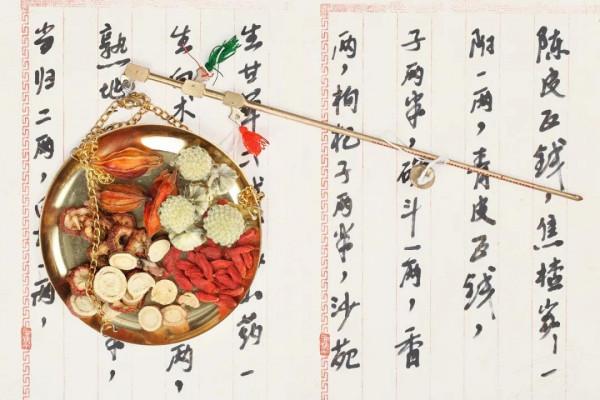 当归二两，二两，
熟地半，
生白术两，
生甘草二山药一
两，枸杞子两半，沙苑
子两半，斗一两，香
阳一两，青皮五钱，
陈皮五钱，焦楂一